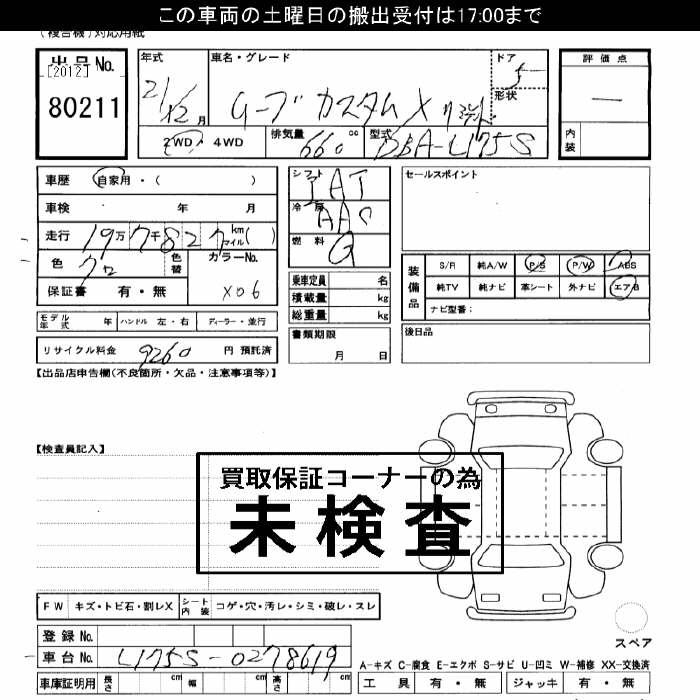 この車両の土曜日の搬出受付は17:00まで
(複合機)対応用紙
出品No.
[2012]
80211
年式
21/12月
車名・グレード
ムーブ カスタム X リミテッド
ドア
5
形状
2WD・4WD
排気量 660 cc
型式 DBA-L175S
評価点
―
内装
車歴 自家用・( )
車検 年 月
走行 19万7千827 km マイル( )
色 クロ 色替
カラーNo. X06
保証書 有・無
シフト IAT
冷房 AAC
燃料 G
乗車定員 名
積載量 kg
総重量 kg
セールスポイント
装備品
S/R 純A/W P/S P/W ABS
純TV 純ナビ 革シート 外ナビ エアB
ナビ型番:
モデル年式 年 ハンドル 左・右 ディーラー・並行
リサイクル料金 9260 円 預託済
書類期限
月 日
後日品
【出品店申告欄(不良箇所・欠品・注意事項等)】
【検査員記入】
買取保証コーナーの為
未検査
FW キズ・トビ石・割レX
シート内装 コゲ・穴・汚レ・シミ・破レ・スレ
スペア
登録No.
車台No. L175S-0278619
車庫証明用 長さ cm 幅 cm 高さ cm
A-キズ C-腐食 E-エクボ S-サビ U-凹ミ W-補修 XX-交換済
工具 有・無 ジャッキ 有・無